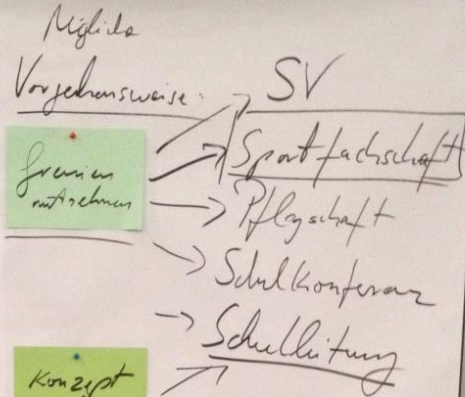 Mögliche
Vorgehensweise:
SV
Gremien
mitnehmen
Sportfachschaft
Pflegschaft
Schulkonferenz
Schulleitung
Konzept